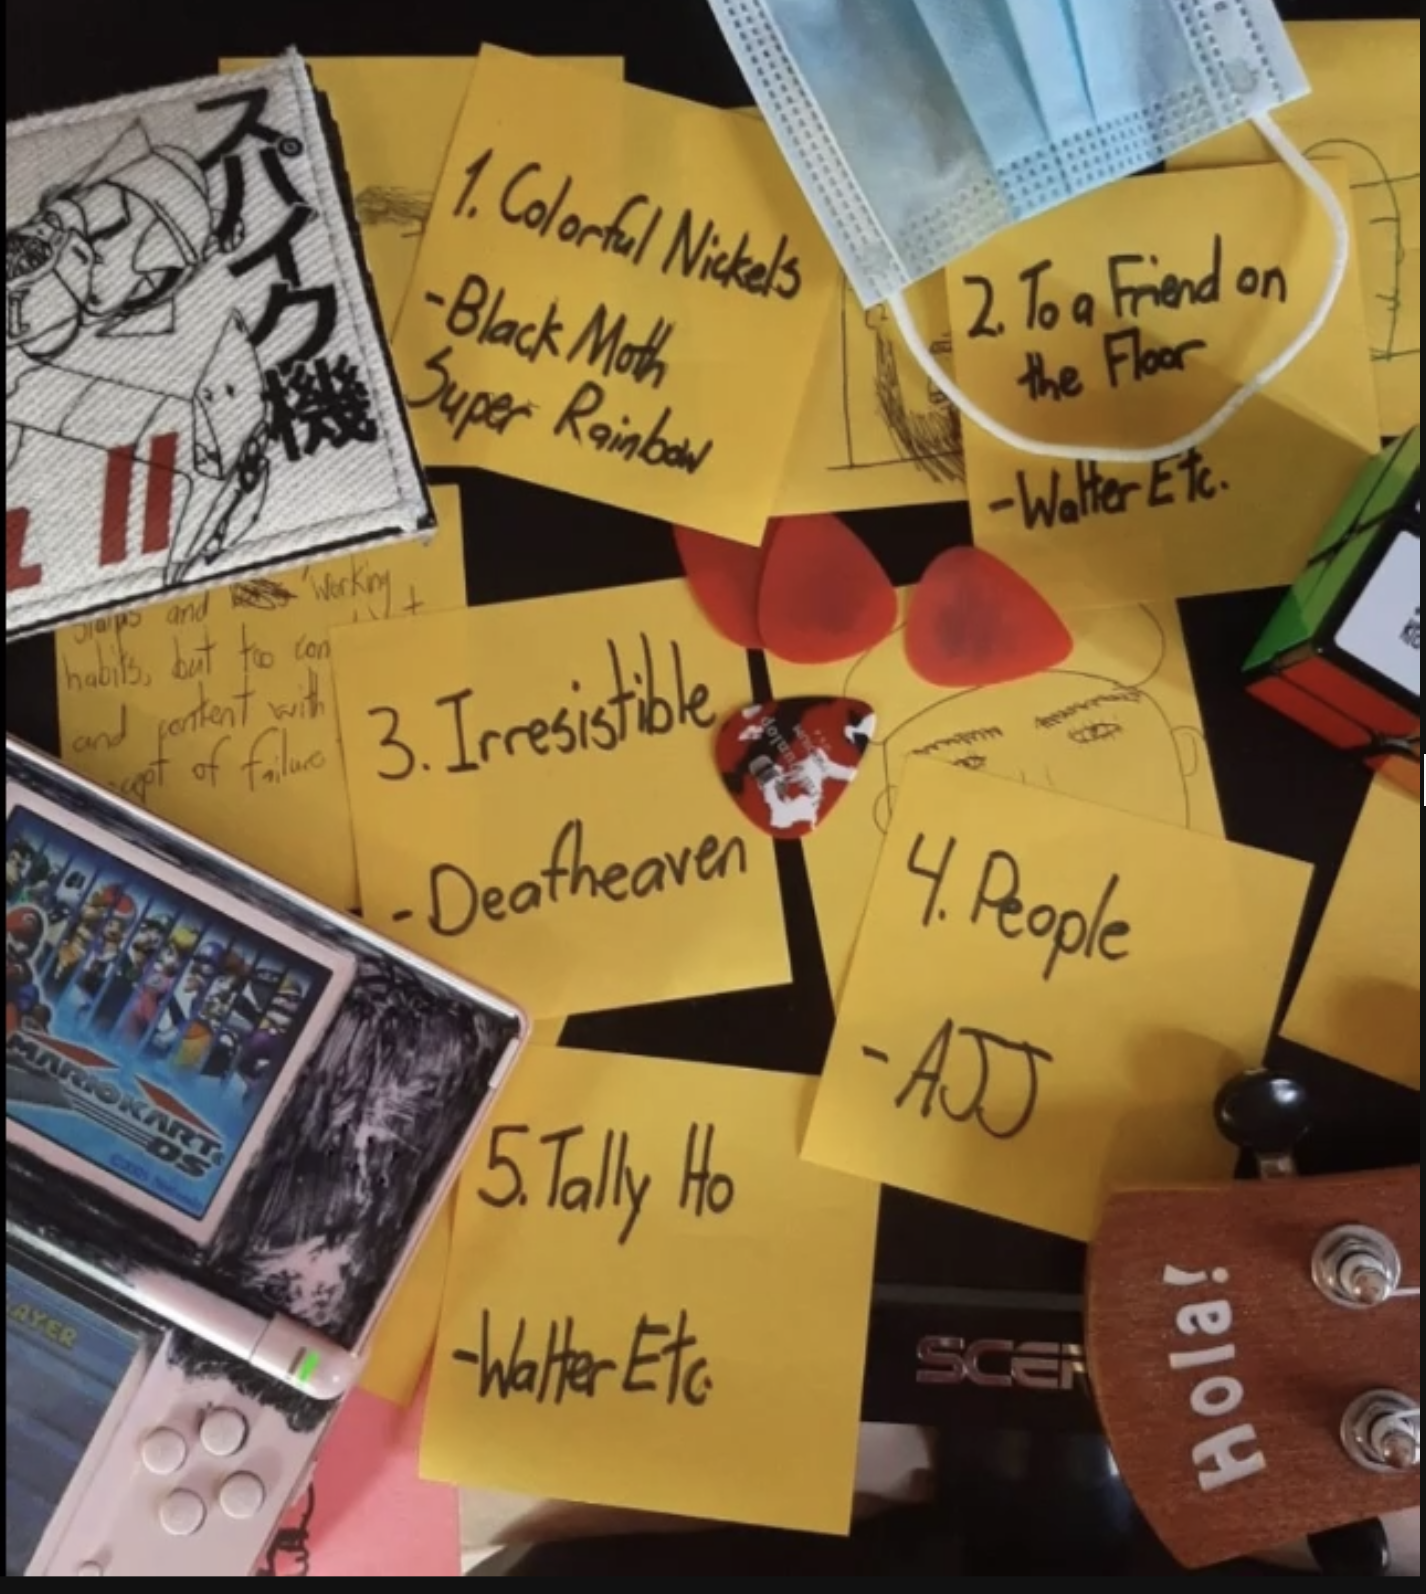 スパイク機
II
1. Colorful Nickels
-Black Moth
Super Rainbow
2. To a Friend on
the Floor
-Walter Etc.
and working
habits, but too
and content with
of failure
3. Irresistible
-Deafheaven
4. People
-AJJ
5. Tally Ho
-Walter Etc.
MARIOKART
DS
Hola!